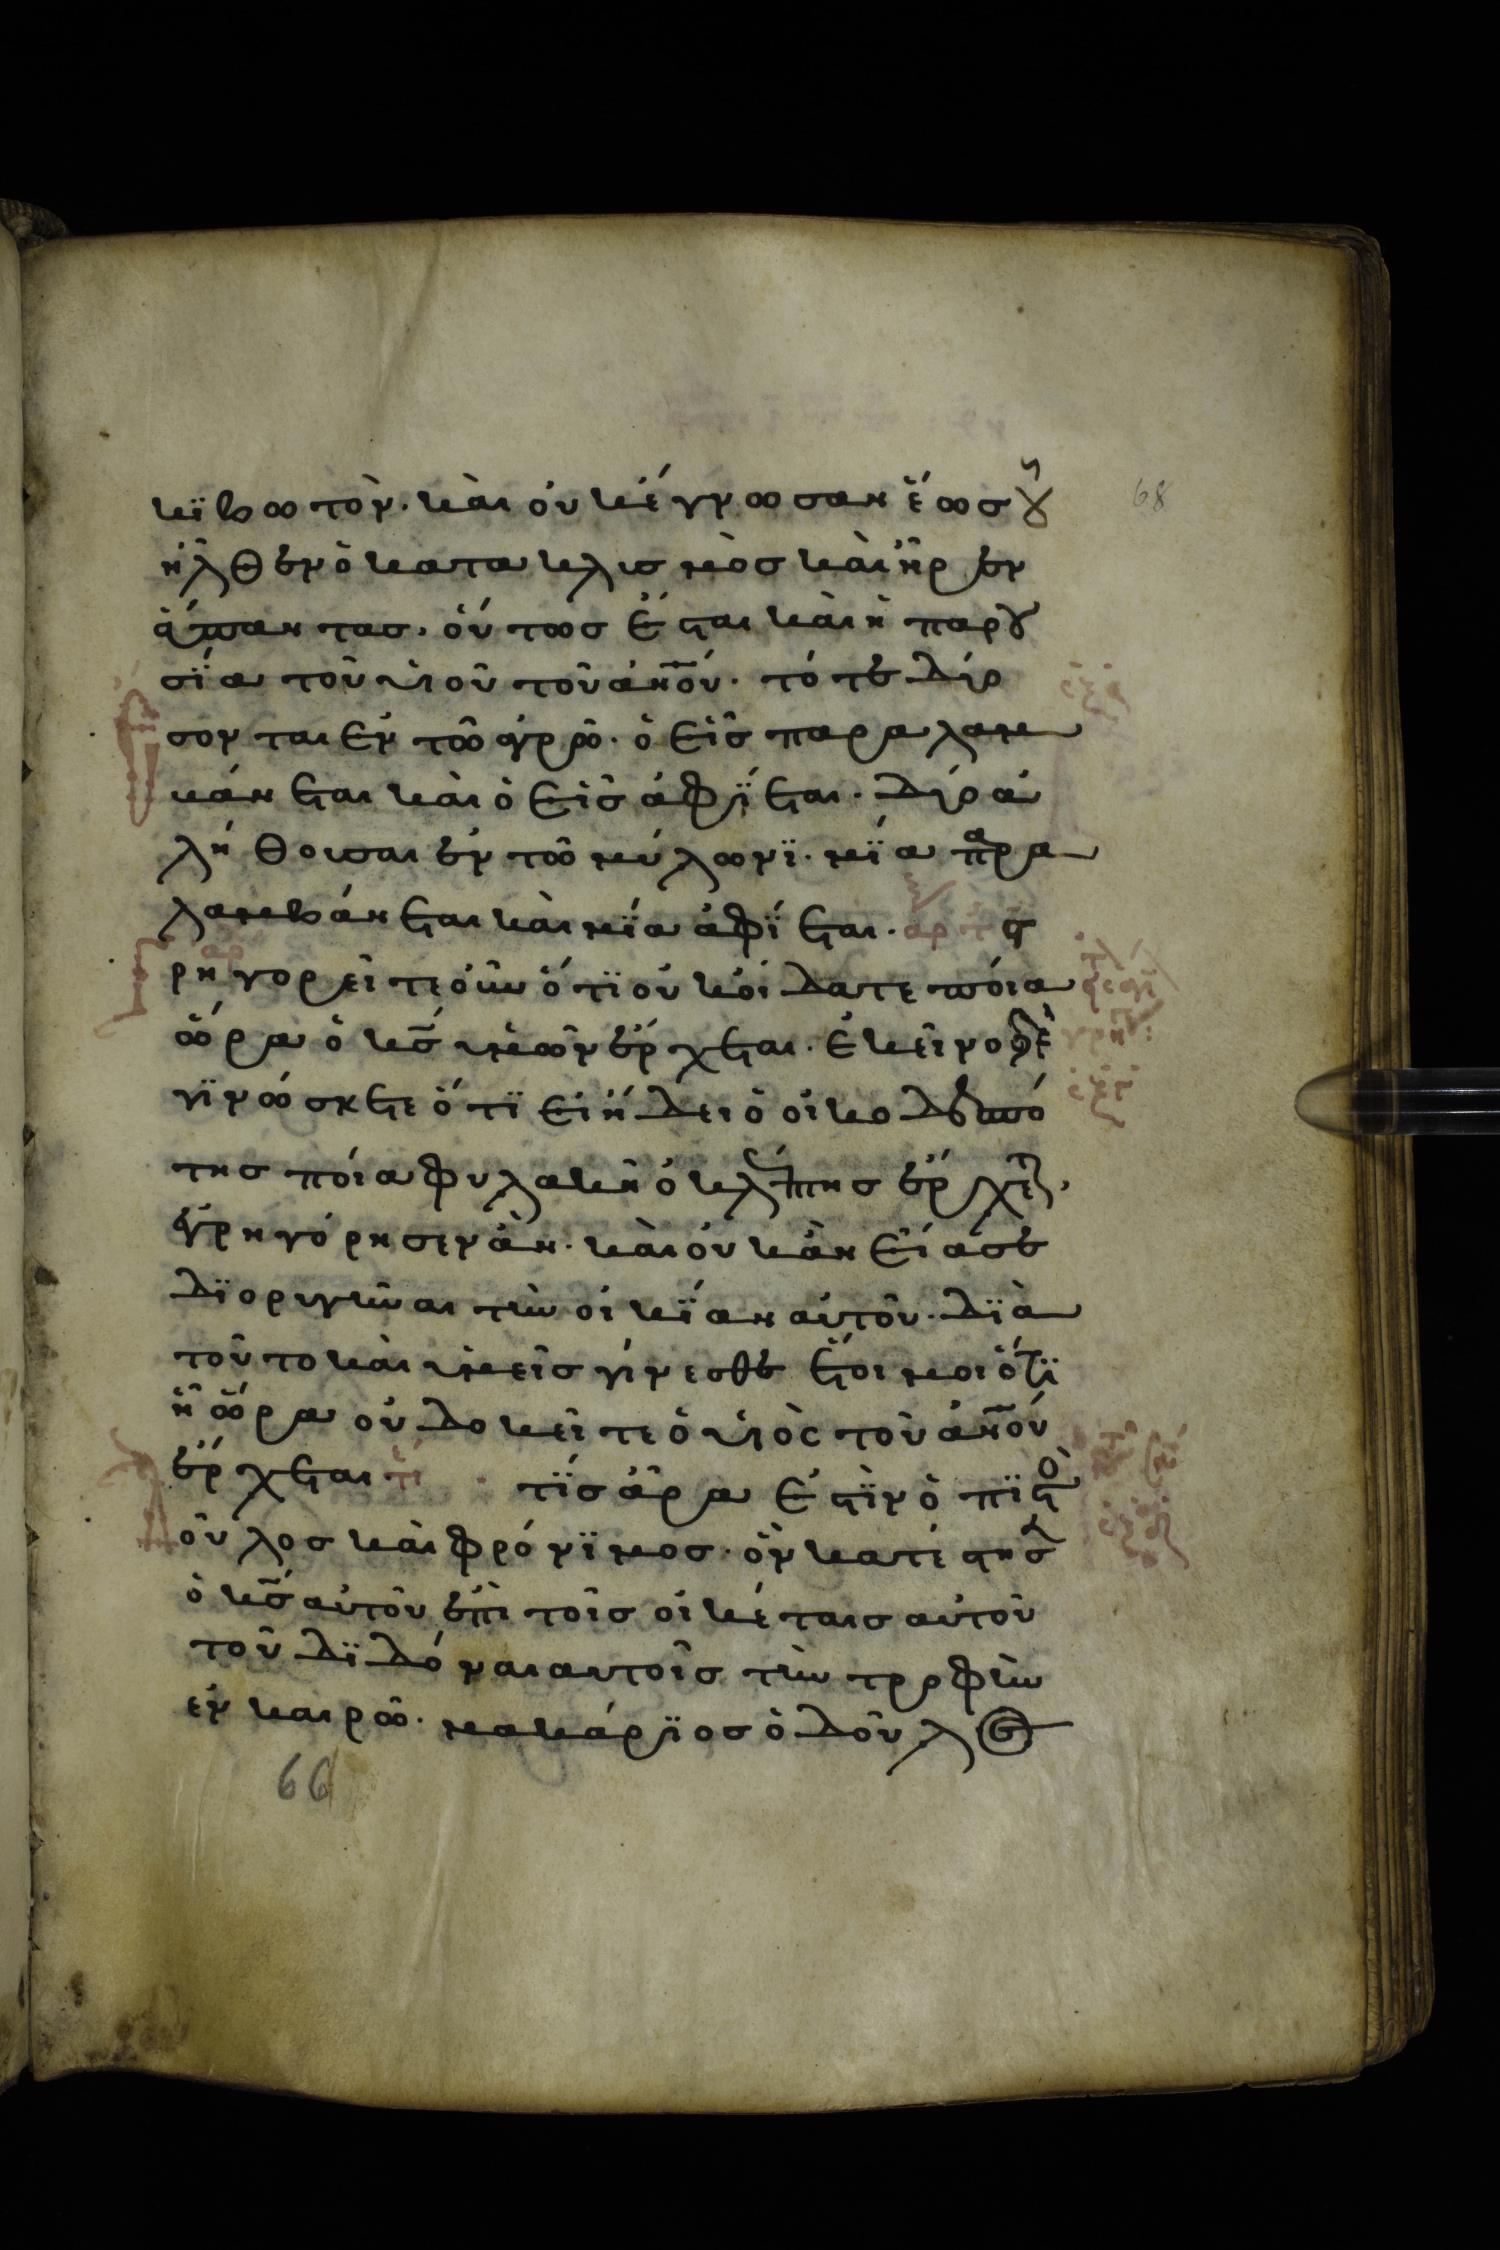 68
κϊβωτὸν· καὶ οὐκ έγνωσαν ἕως οὗ
ἦλθεν ὁ κατακλισμὸς καὶ ἦρεν
ἅπαντας, οὕτως ἔσται καὶ ἡ παρου
σϊα τοῦ υἱοῦ τοῦ ἀν̅ο̅ύ· τότε δύο
σονται ἐν τῶ ἀγρῶ· ὁ εἷς παραλαμ
βάνεται καὶ ὁ εἷς ἀφΐεται· δύο ἀ
λήθουσαι ἐν τῶ μύλωνϊ· μΐα παρα
λαμβάνεται καὶ μΐα ἀφΐεται· ἀρ τέ γ
ρηγορεῖτε οὖν ὅτϊ οὐκ οἴδατε ποία
ὥρα ὁ κ̅ς̅ ὑμῶν ἔρχεται· ἐκεῖνο δὲ
γϊνώσκετε ὅτϊ εἰ ἤδει ὁ οἰκοδεσπό
της ποία φυλακῆ ὁ κλέπτης ἔρχετ,
ἐγρηγόρησεν ἂν· καὶ οὐκ ἂν εἴασε
δϊορυγῆναι τὴν οἰκΐαν αὐτοῦ· δϊὰ
τοῦτο καὶ ὑμεῖς γίνεσθε ἕτοιμοι ὅτϊ
ἧ ὥρα οὐ δοκεῖτε ὁ υἱὸς τοῦ ἀν̅ο̅ύ
ἔρχεται τέ· τΐς ἄρα ἐστϊν ὁ πϊστὸ
οῦλος καὶ φρόνϊμος· ὃν κατέστησ
ὁ κ̅ς̅ αὐτοῦ ἐπὶ τοῖς οἰκέταις αὐτοῦ
τοῦ δϊδόναι αυτοῖς τὴν τροφὴν
ἐν καιρῶ· μακάρϊος ὁ δοῦλος
66